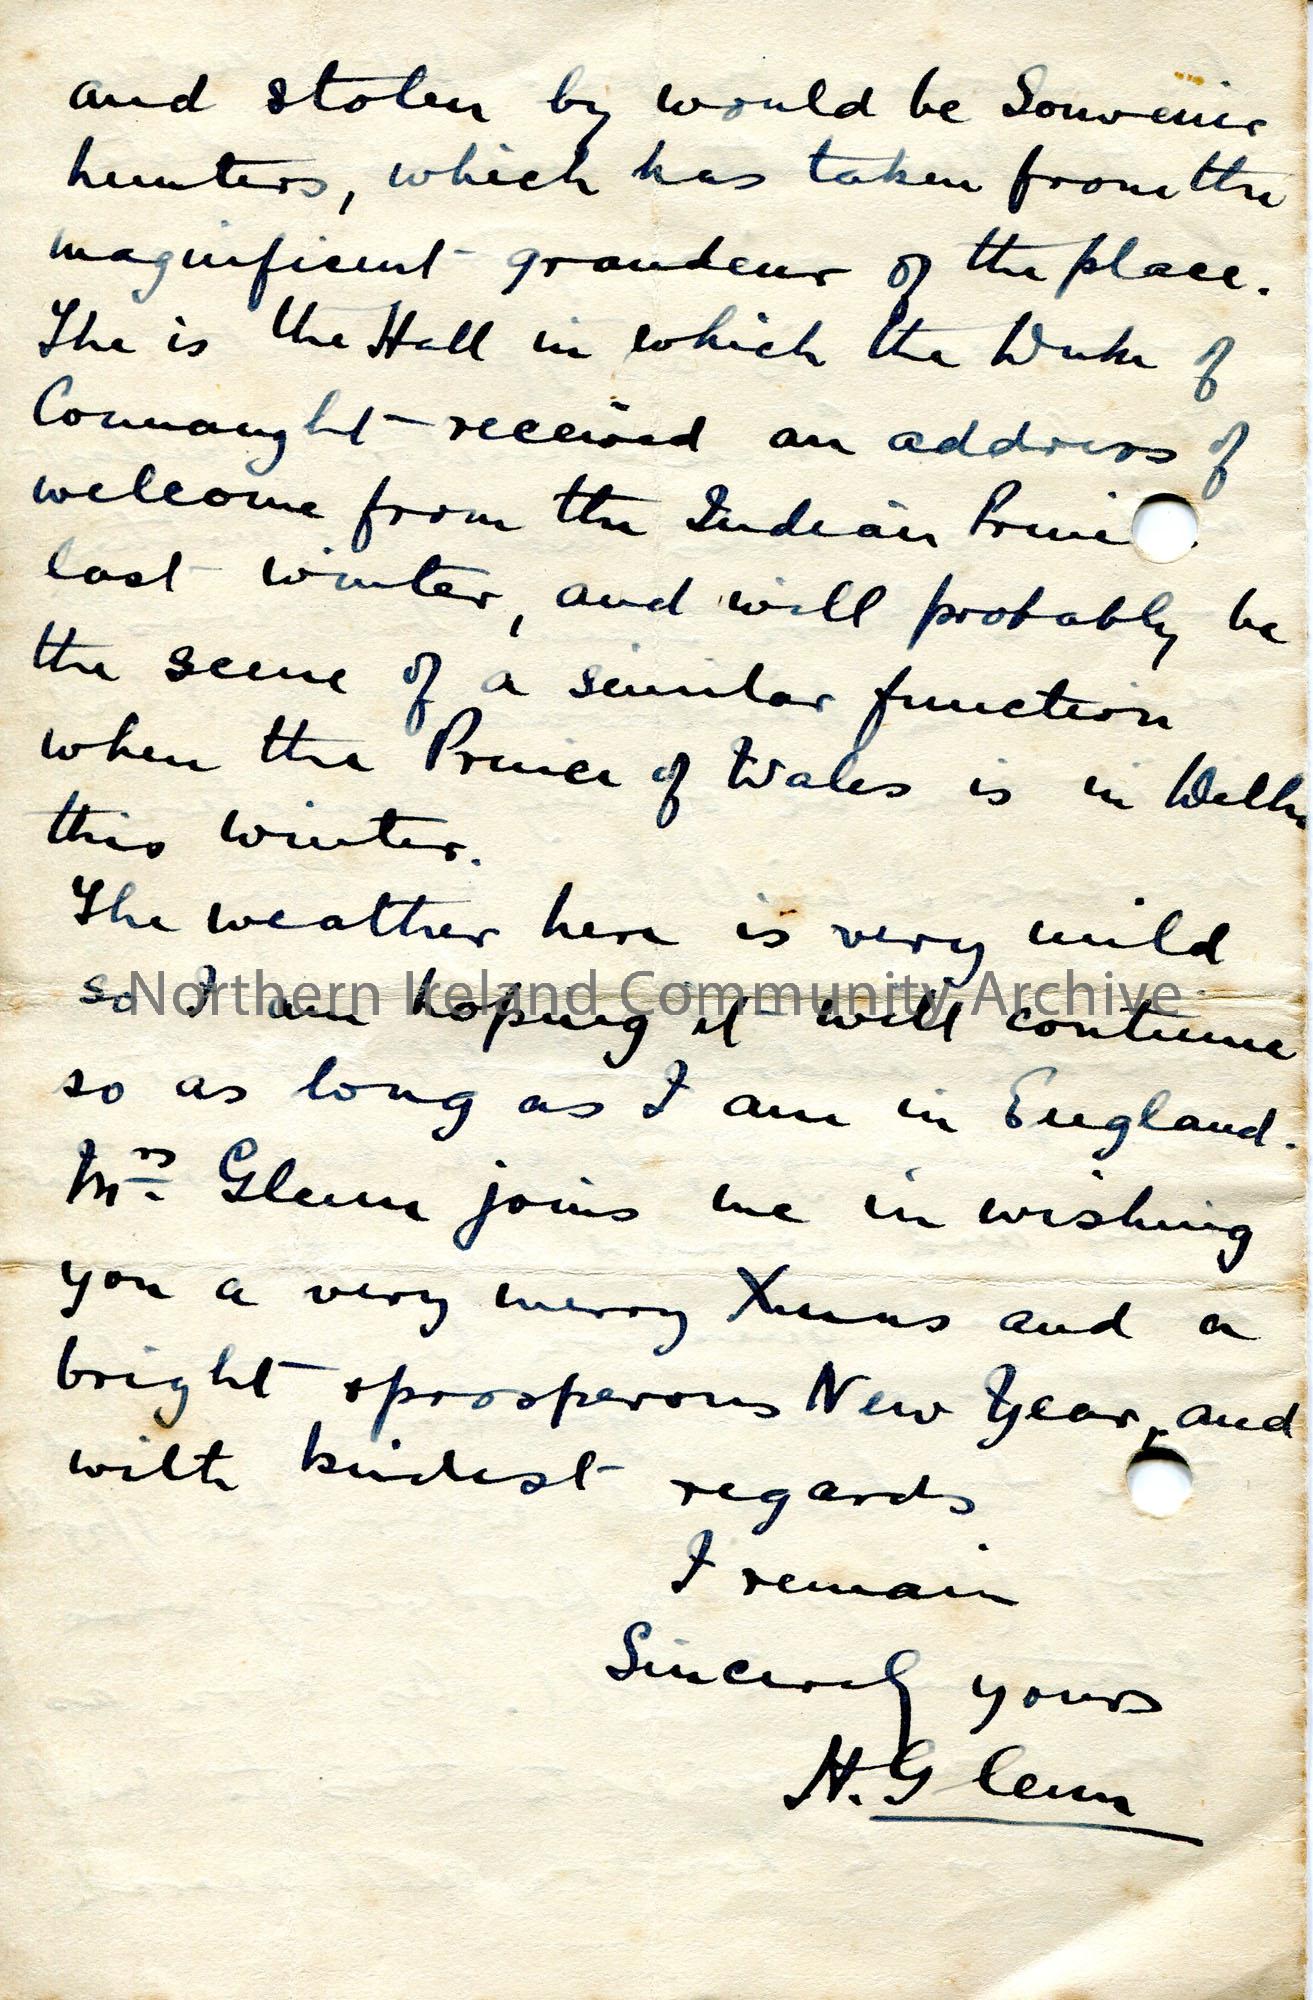 and stolen by would be Souvenir
hunters, which has taken from the
magnificent grandeur of the place.
The is the Hall in which the Duke of
Connaught received an address of
welcome from the Indian Princ
last winter, and will probably be
the scene of a similar function
when the Prince of Wales is in Delhi
this winter.
The weather here is very mild
so I am hoping it will continue
Northern Ireland Community Archive
so as long as I am in England.
Mrs Glenn joins me in wishing
you a very merry Xmas and a
bright & prosperous New Year, and
with kindest regards
I remain
Sincerely yours
H. Glenn